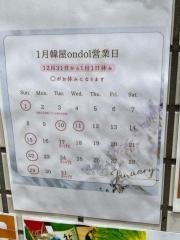 1月韓屋ondol営業日
12月31日から1月1日休み
〇がお休みになります
Sun Mon Tue Wed Thu Fri Sat
1 2 3 4 5 6 7
8 9 10 11 12 13 14
15 16 17 18 19 20 21
22 23 24 25 26 27 28
29 30 31
January